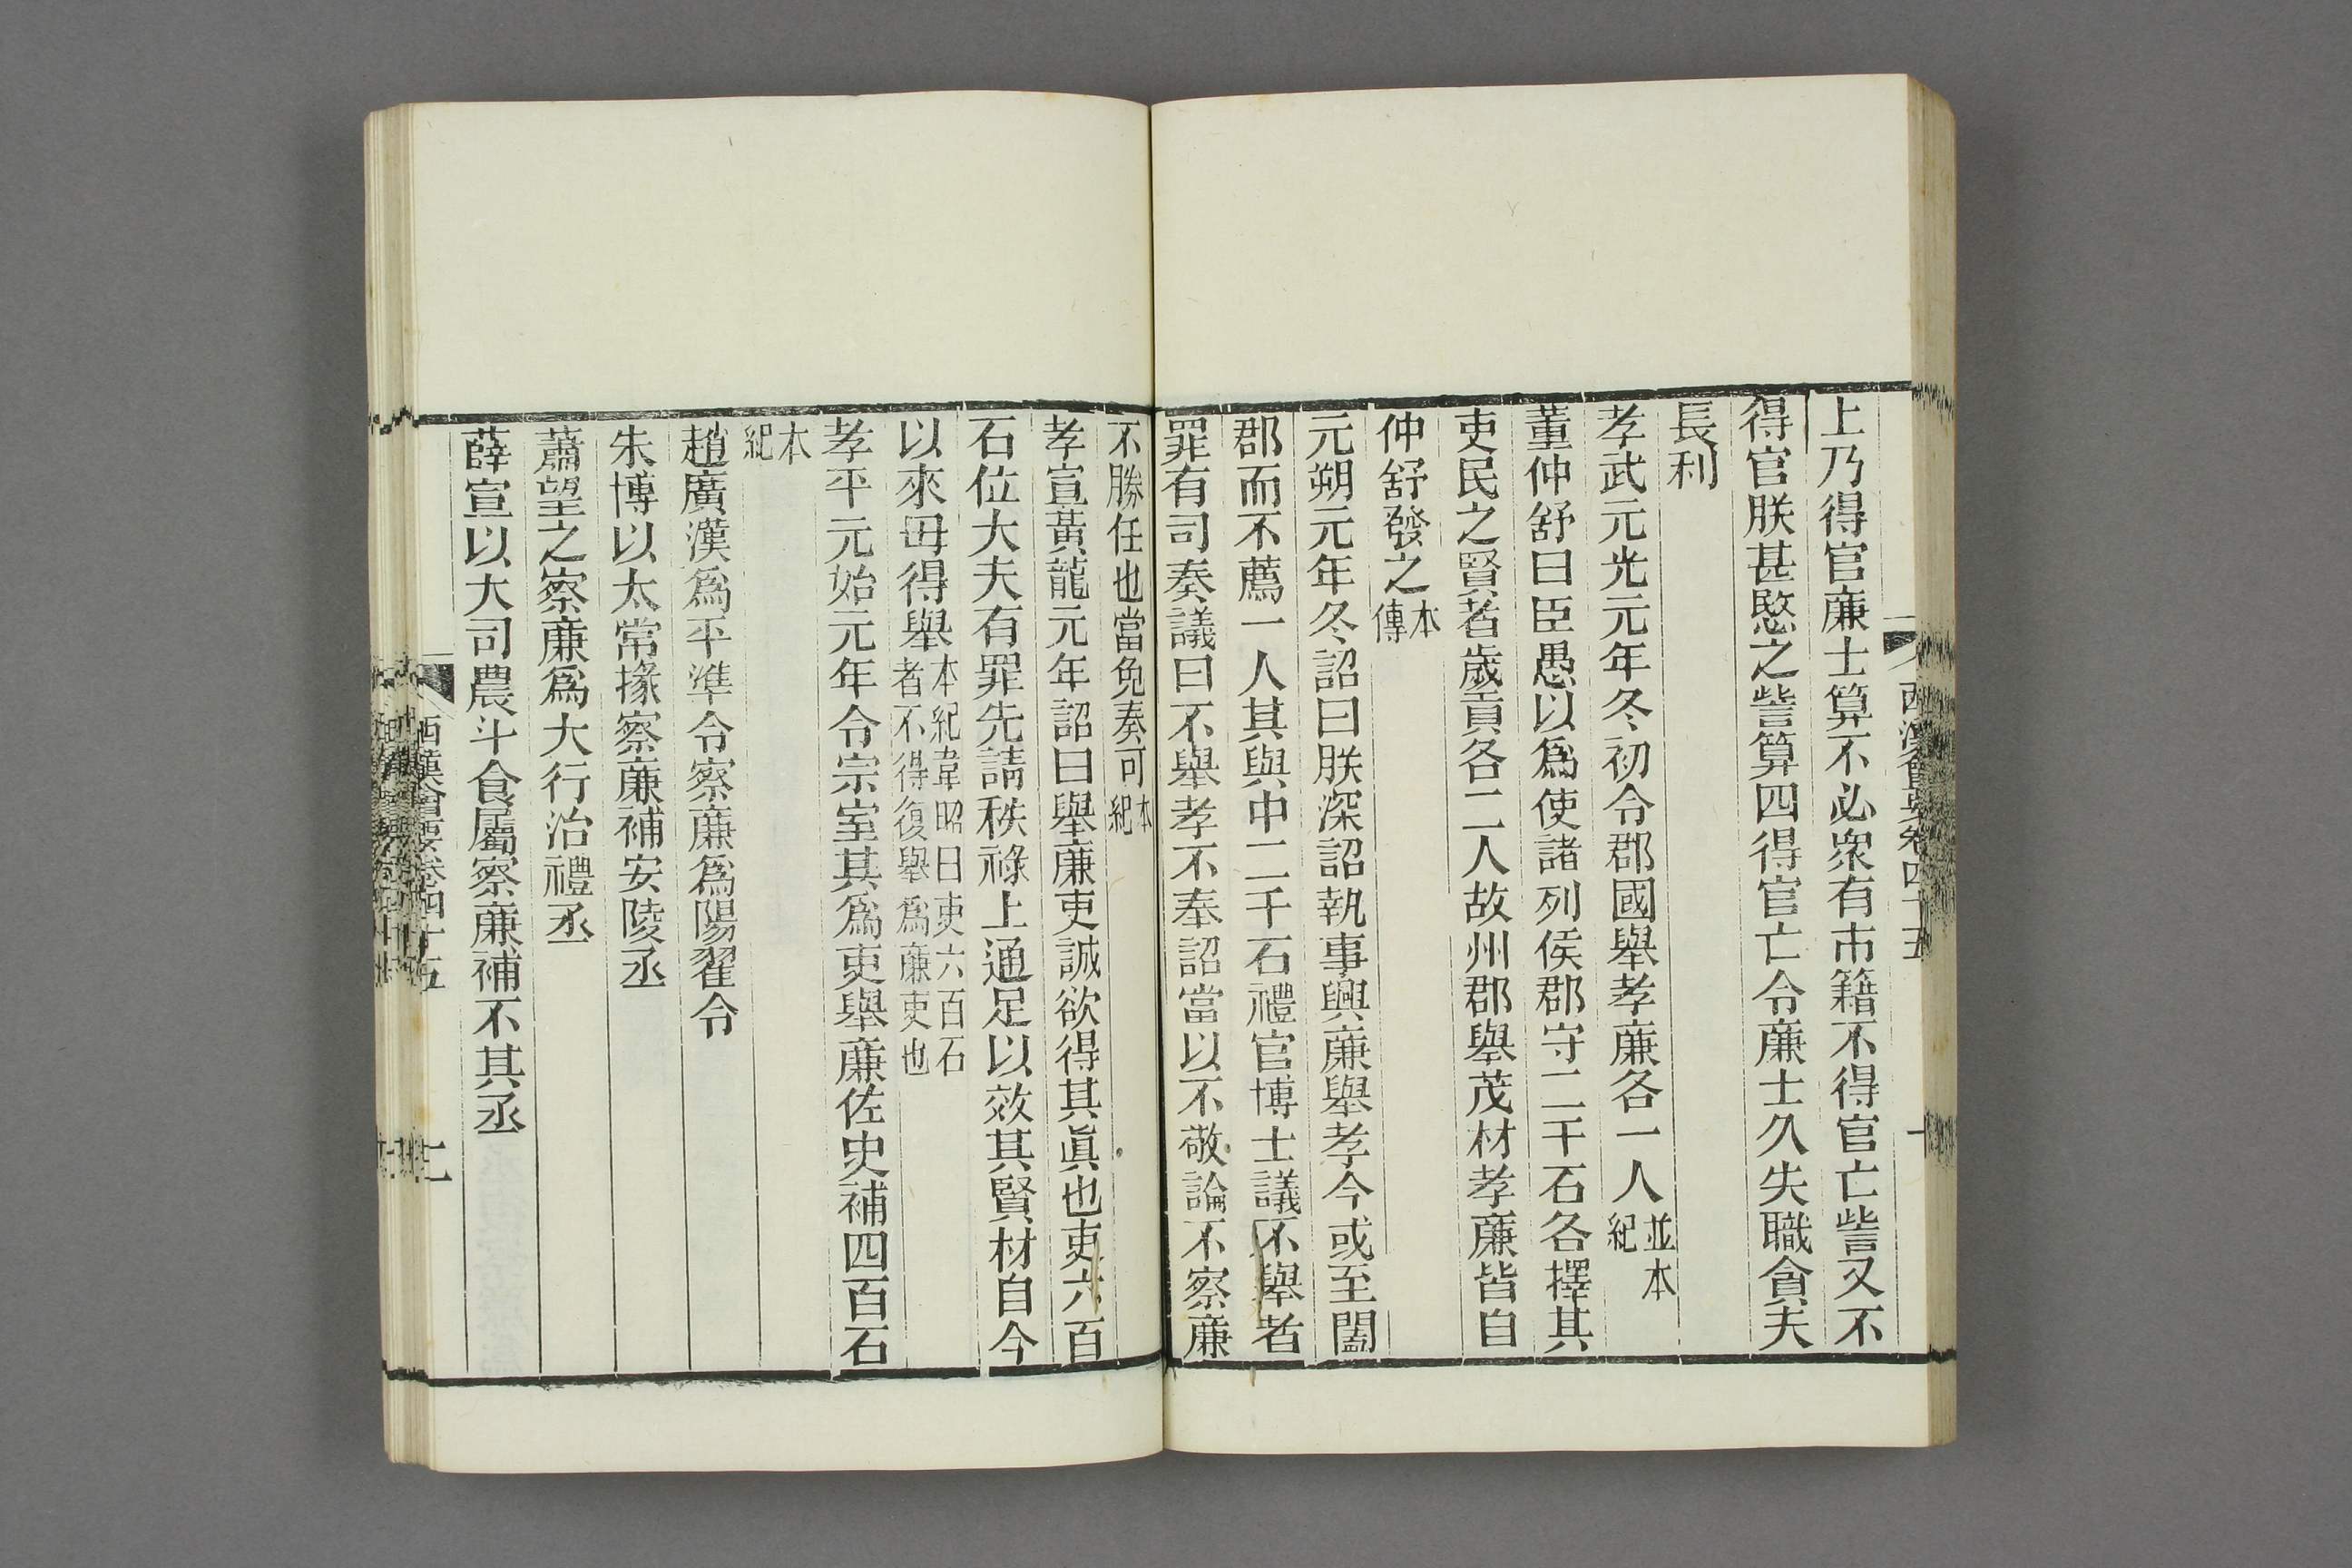 西漢會要卷四十五
上乃得官廉士算不必衆有市籍不得官亡訾又不
得官朕甚愍之訾算四得官亡令廉士久失職貪夫
長利
孝武元光元年冬初令郡國舉孝廉各一人並本紀
董仲舒曰臣愚以爲使諸列侯郡守二千石各擇其
吏民之賢者歲貢各二人故州郡舉茂材孝廉皆自
仲舒發之本傳
元朔元年冬詔曰朕深詔執事興廉舉孝今或至闔
郡而不薦一人其與中二千石禮官博士議不舉者
罪有司奏議曰不舉孝不奉詔當以不敬論不察廉
不勝任也當免奏可本紀
孝宣黃龍元年詔曰舉廉吏誠欲得其眞也吏六百
石位大夫有罪先請秩祿上通足以效其賢材自今
以來毋得舉本紀韋昭曰吏六百石者不得復舉爲廉吏也
孝平元始元年令宗室其爲吏舉廉佐史補四百石
本紀
趙廣漢爲平準令察廉爲陽翟令
朱博以太常掾察廉補安陵丞
蕭望之察廉爲大行治禮丞
薛宣以大司農斗食屬察廉補不其丞
西漢會要卷四十五